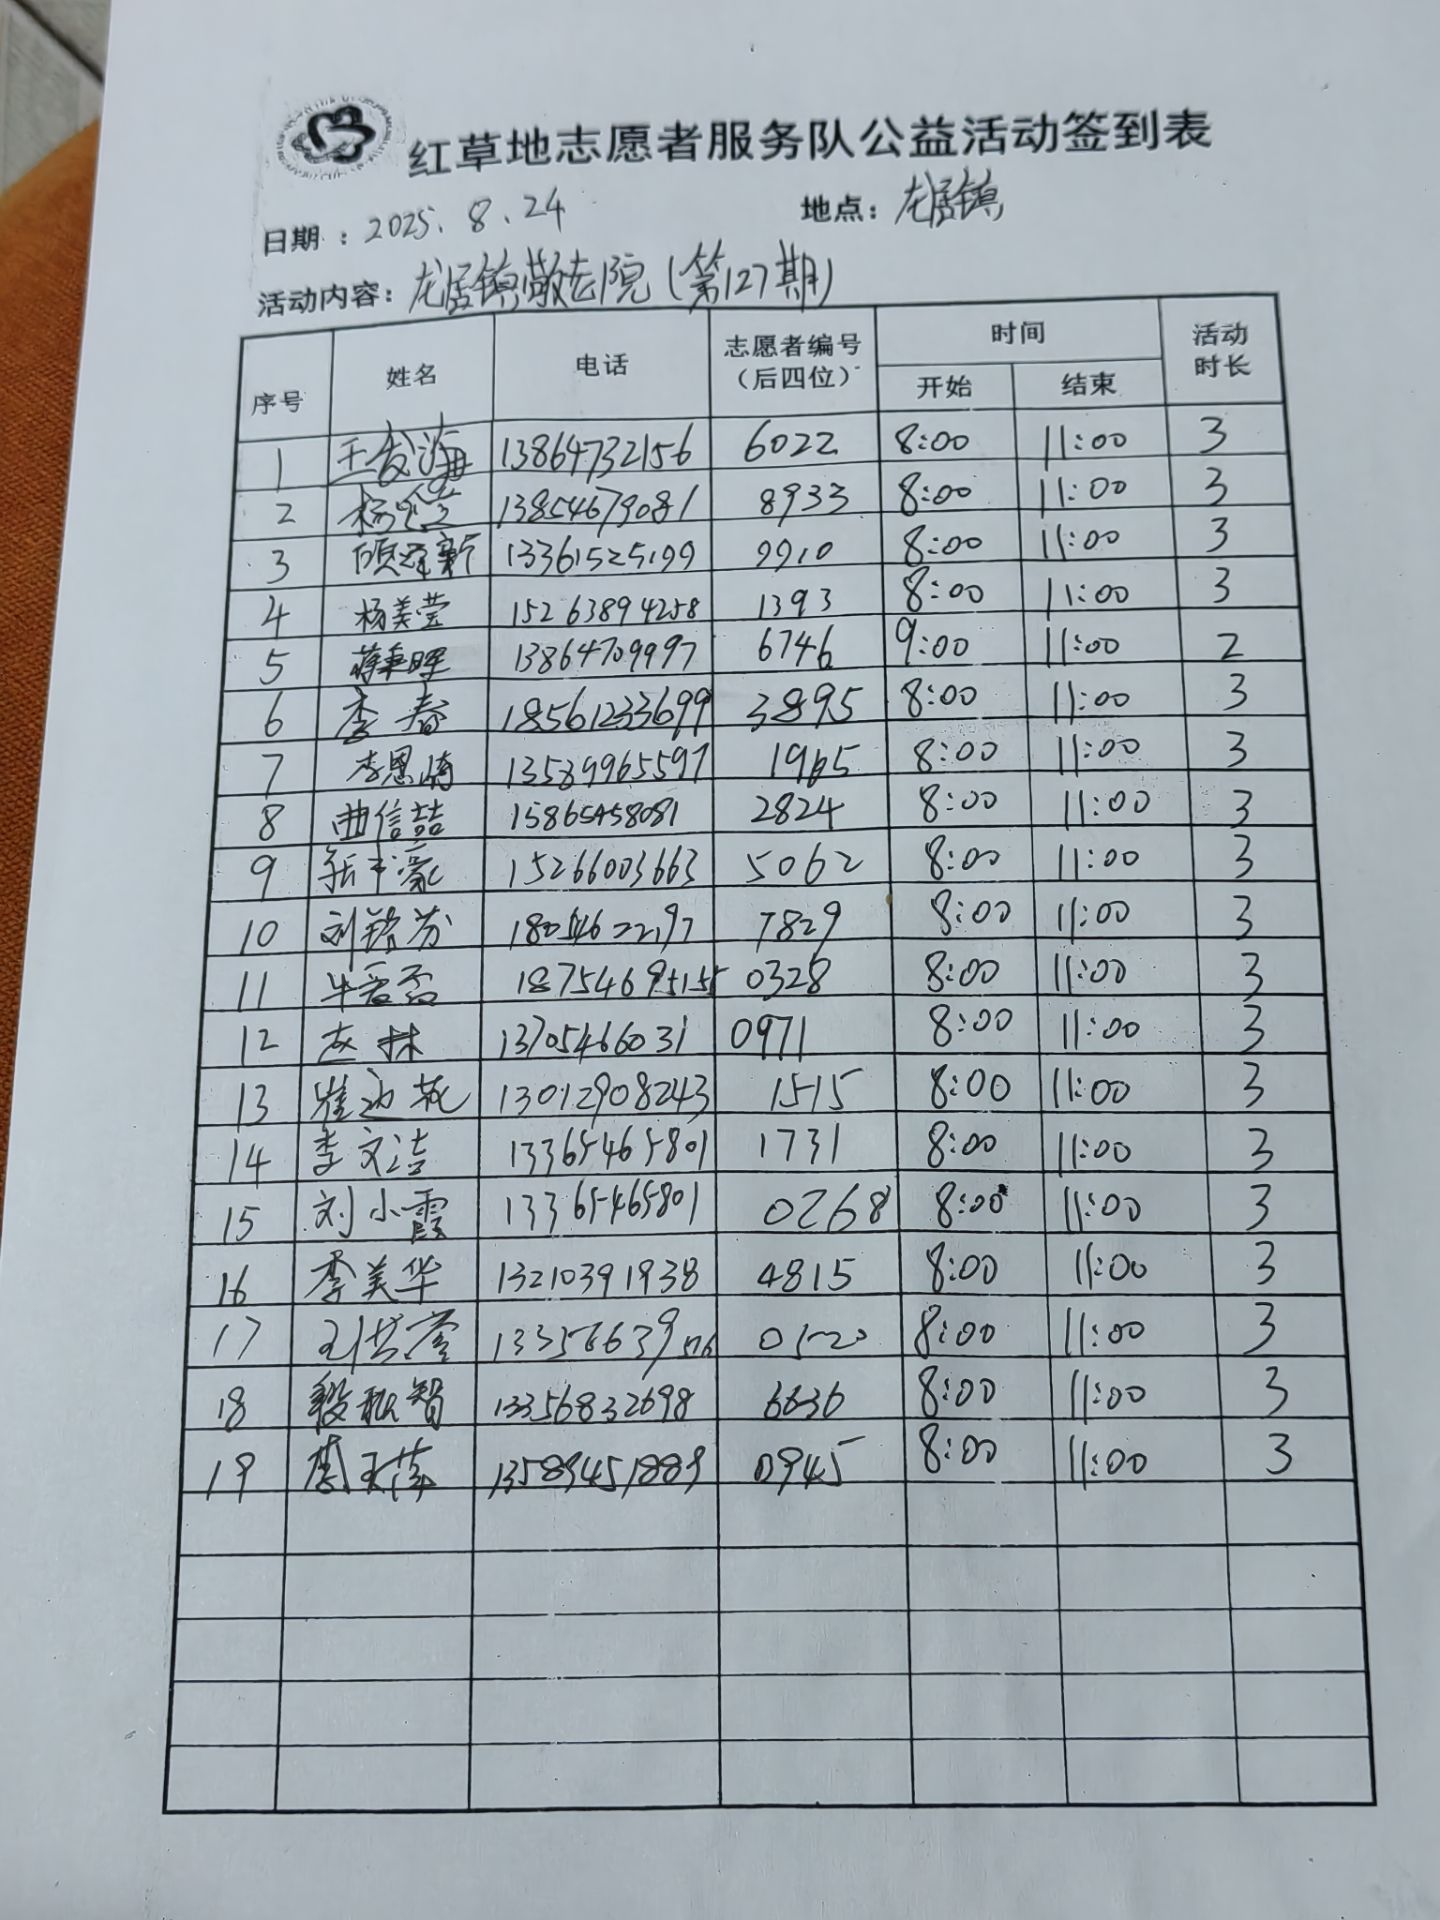 红草地志愿者服务队公益活动签到表
日期：2025.8.24 地点：龙居镇
活动内容：龙居镇敬老院（第127期）
序号 姓名 电话 志愿者编号（后四位） 时间 开始 结束 活动时长
1 王发海 13864732156 6022 8:00 11:00 3
2 杨 13854679081 8933 8:00 11:00 3
3 顾泽新 13361525199 9910 8:00 11:00 3
4 杨美莹 15263894258 1393 8:00 11:00 3
5 蒋秉晖 13864709997 6746 9:00 11:00 2
6 李春 18561233699 3895 8:00 11:00 3
7 李恩崎 13589965597 1965 8:00 11:00 3
8 曲信喆 15865458081 2824 8:00 11:00 3
9 张千豪 15266003663 5062 8:00 11:00 3
10 刘锦芬 18054622197 7829 8:00 11:00 3
11 牛爱 18754695155 0328 8:00 11:00 3
12 赵林 13705466031 0971 8:00 11:00 3
13 崔迎花 13012908243 1515 8:00 11:00 3
14 李文洁 13365465801 1731 8:00 11:00 3
15 刘小霞 13365465801 0268 8:00 11:00 3
16 李美华 13210391938 4815 8:00 11:00 3
17 0520 8:00 11:00 3
18 智 13356832698 6636 8:00 11:00 3
19 13589451889 0945 8:00 11:00 3